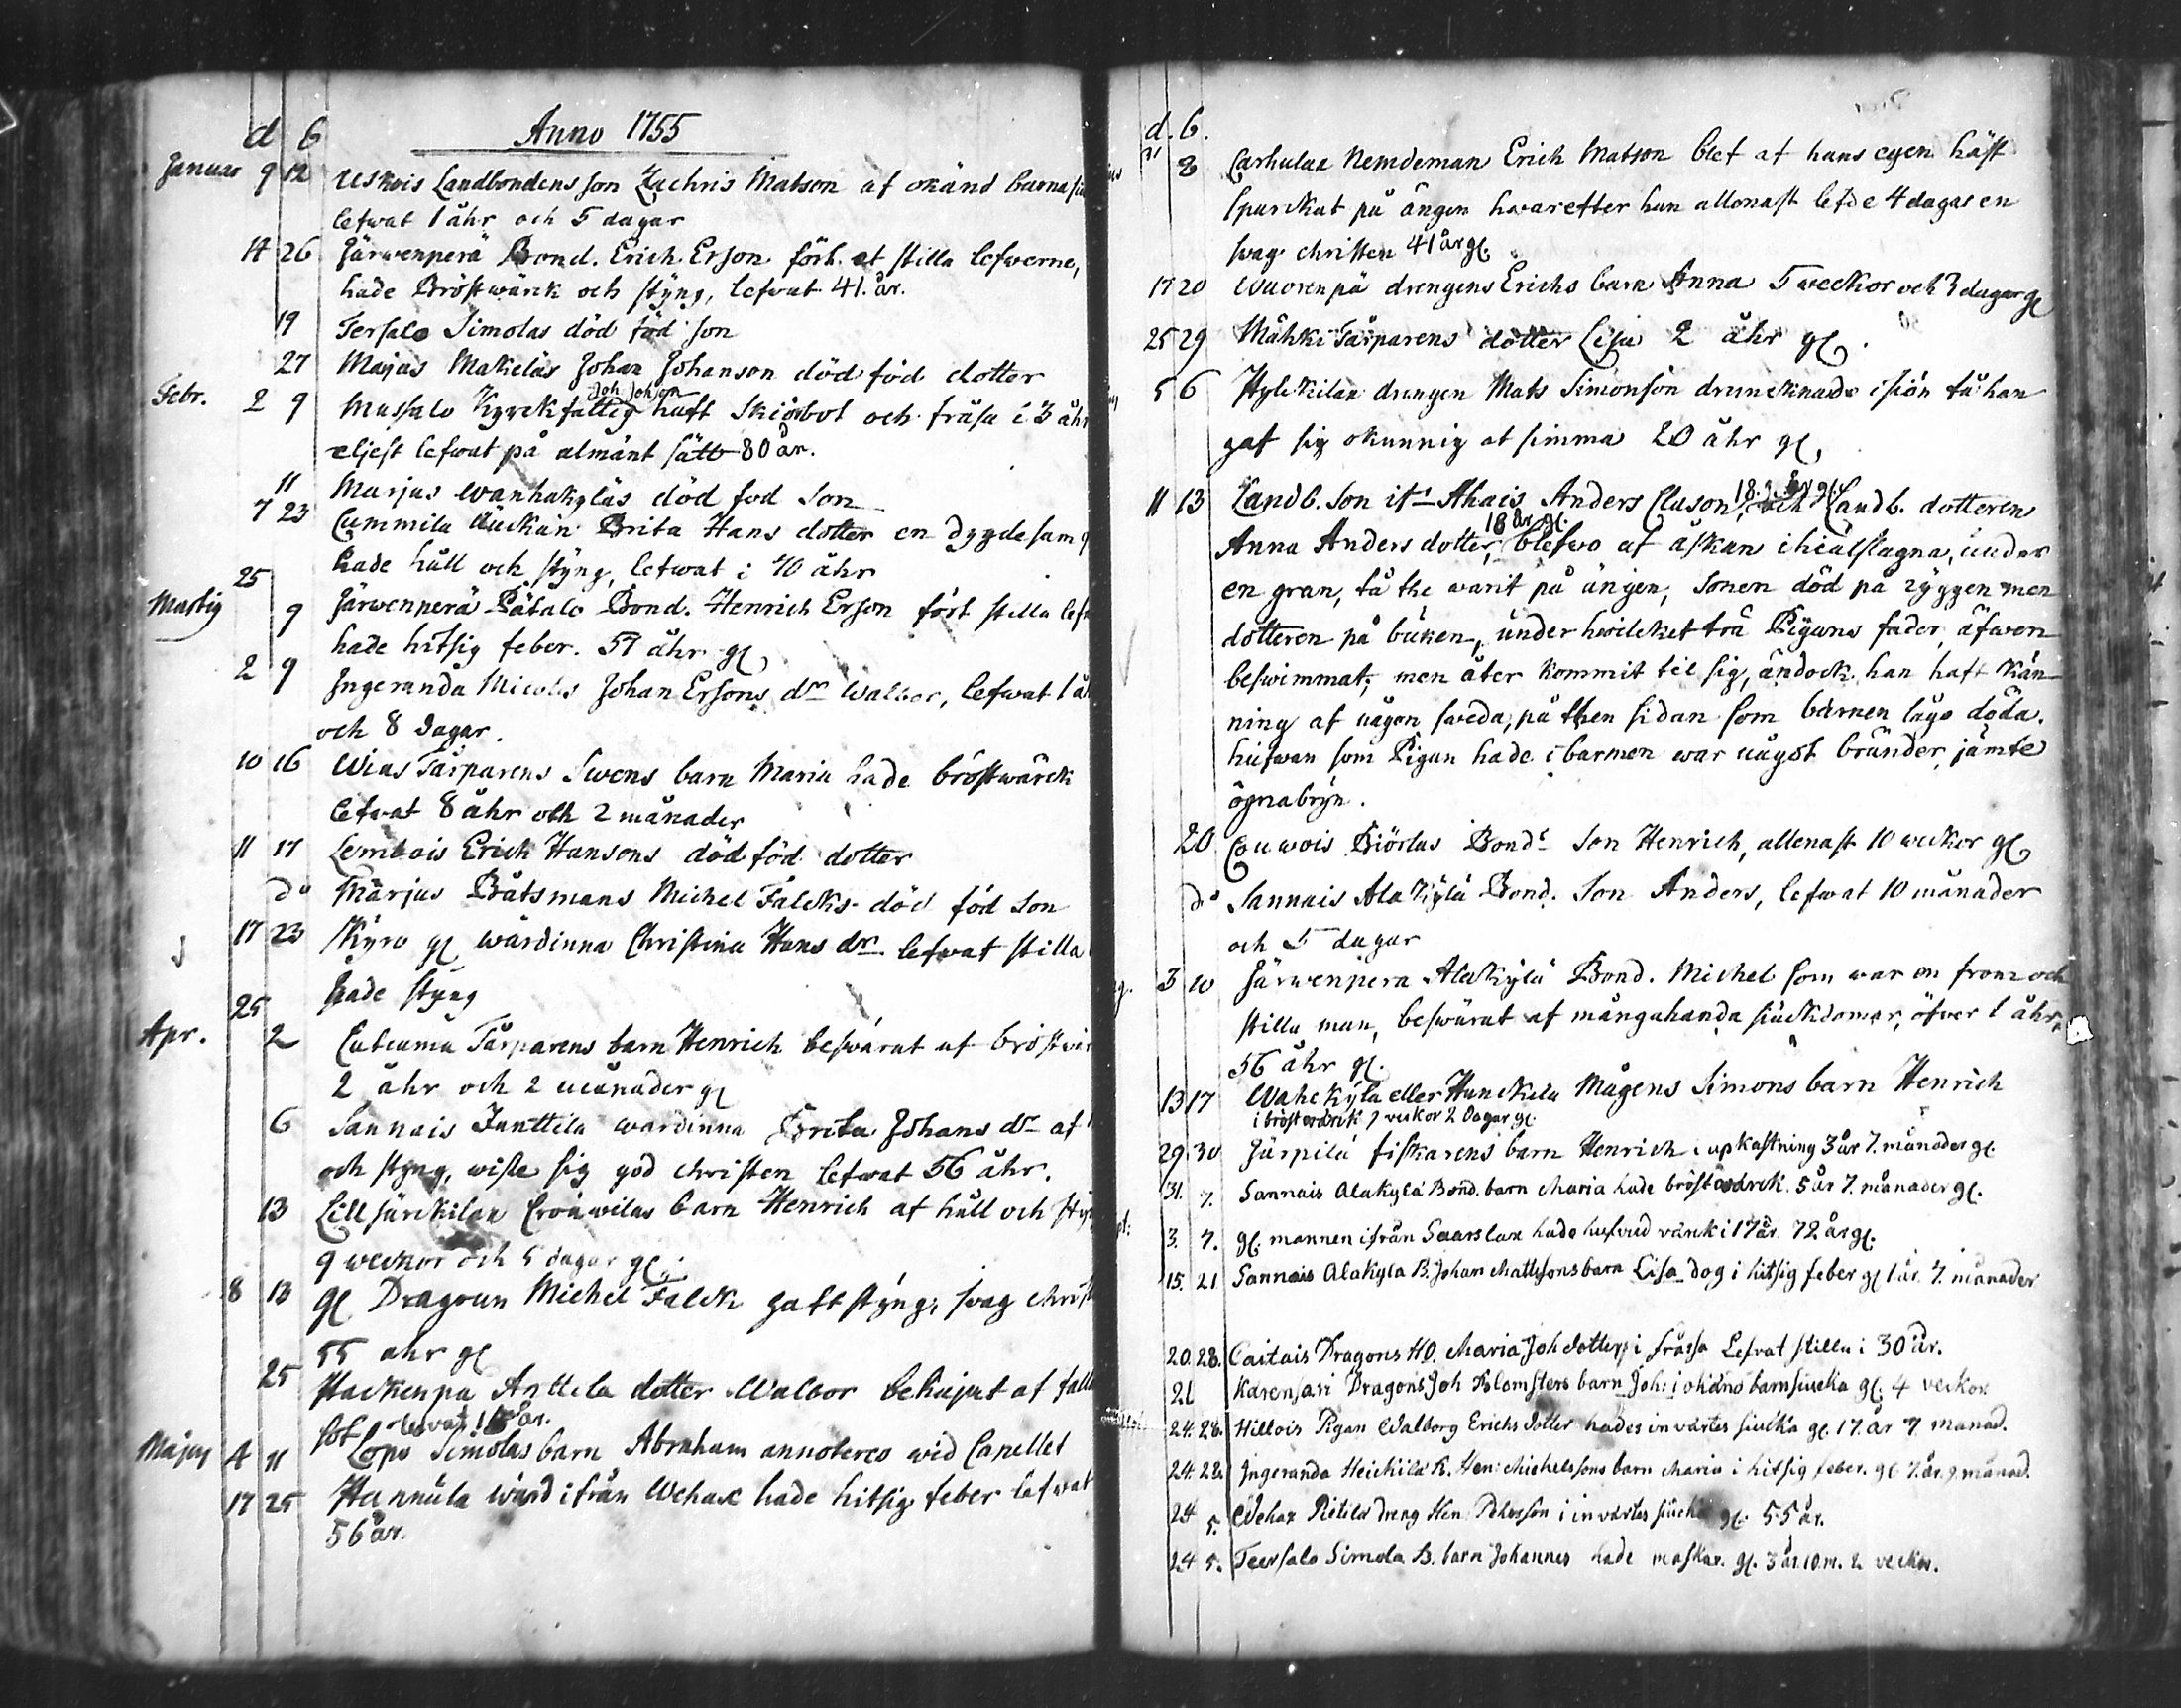 Anno 1755
d b
Januar 9 12 Uskois Landbondens son Zachris Matson af okänd barna
lefwat 1 åhr och 5 dagar
14 26 Järwenperä Bond. Erich Erson förh. et stilla lefwerne,
hade Bröstwärck och styng, lefwat 41. år.
19 Tersalo Simolas död föd son
27 Marjas Makelas Johan Johanson död föd dotter
Joh Johson
Febr. 2 9 Massalo Kyrckfattig haft Skiörbot och fråsa i 3 åhr
eljest lefwat på almänt sätt 80 år.
11 Marjas wanhakyläs död föd son
7 23 Cummila Brita Hans dotter en dygdesam
hade håll och styng, lefwat i 70 åhr
25
Martij 9 Järwenperä Pätalo Bond. Henrich Erson fört stilla
hade hitsig feber. 57 åhr gl
2 9 Ingeranda Micolis Johan Ersons dr Walbor, lefwat 1
och 8 dagar.
10 16 Wias Tårparens Swens barn Maria hade bröstwärck
lefwat 8 åhr och 2 månader
11 17 Lembois Erich Hansons död föd dotter
do Märjas Båtsmans Michel Falcks död föd son
17 23 Kyro gl wärdinna Christina Hans dr lefwat stilla
hade styng
25
Apr. 2 Tårparens barn Henrich beswärat af
2 åhr och 2 månader gl
6 Sannais Junttila wärdinna Brita Johans dr af
och styng, wiste sig god christen lefwat 56 åhr.
13 Lillsärckilax barn Henrich af håll och
9 weckor och 5 dagar gl.
8 13 gl Dragoun Michel Falck haft styng, swag
55 åhr gl
25 Hackenpä Anttila dotter Walbor behäjat af
sot lefvat år.
Majus 4 11 Lopo Simolas barn Abraham annoteres wid Capellet
17 25 Hannula wärd ifrån Wehax hade hitsig feber lefwat
56 år.
d. b.
8 Carhulax Nemdeman Erich Matson blef af hans egen häst
sparckat på ängen hwarefter han allenast lefde 4 dagar en
swag christen 41 år gl.
17 20 Wuorenpä drengens Erichs barn Anna 5 weckor och 3 dagar gl
25 29 Mähki Tårparens dotter Lisa 2 åhr gl.
5 6 Hylckilax drengen Mats Simonson drunecknade i siön tå han
gaf sig okunnig at simma 20 åhr gl,
11 13 Landb. Son Ahais Anders Clason, och Landb. dotteren
18 år gl.
Anna Anders dotter, blefwo af åskan ihiälslagna, under
en gran, tå the warit på ängen, Sonen död på ryggen men
dotteren på buken, under hwilcket trä Pigans fader äfwen
beswimmat, men åter kommit til sig, ändock han haft Kän-
ning af någon sweda, på then sidan som barnen lågo döda.
hufwan som Pigan hade i barmen war något bränder jämte
ögnabryn.
20 Couwois Biörlas Bonds Son Henrich, allenast 10 weckor gl
do Sannais Alakylä Bond. Son Anders, lefwat 10 månader
och 5 dagar
3 10 Järwenpera Alakylä Bond. Michel som war en from och
stilla man, beswärat af mångahanda siuckdomar, öfver 1 åhr,
56 åhr gl.
13 17 Wahekyla eller Hunckela Mågens Simons barn Henrich
i bröstwärck 7 veckor 2 Dagar gl.
29 30 Järpilä fiskarens barn Henrich i upkastning 3 år 7. månader gl.
31. 7. Sannais Alakylä Bond. barn Maria hade bröstwärck. 5 år 7. månader gl.
3. 7. gl. mannen ifrån Saarslax hade hufvud värck i 17 år. 72 år gl.
15. 21 Sannais Alakyla B. Johan Mattssons barn Lisa dog i hitsig feber gl 1 år. 7. månader
20. 28. Caitais Dragons HO. Maria Joh dotter i fråssa Lefvat stilla i 30 år.
21 Karensari Dragons Joh Blomsters barn Joh: i okänd barnsiucka gl. 4 veckor.
24. 28. Hillois Pigan Walborg Erichs dotter hade invärtes siucka gl. 17. år 7 månad.
24. 28. Ingeranda Heickilä R. Hen: Michelssons barn Maria i hitsig feber. gl 7. år. 9. månad.
24 5. Wehax Pietilä Dreng Hen: i invärtes siucka gl. 55 år.
24 5. Teersalo Simola B. barn Johannes hade maskar. gl. 3 år. 10. m. 2 veckor.